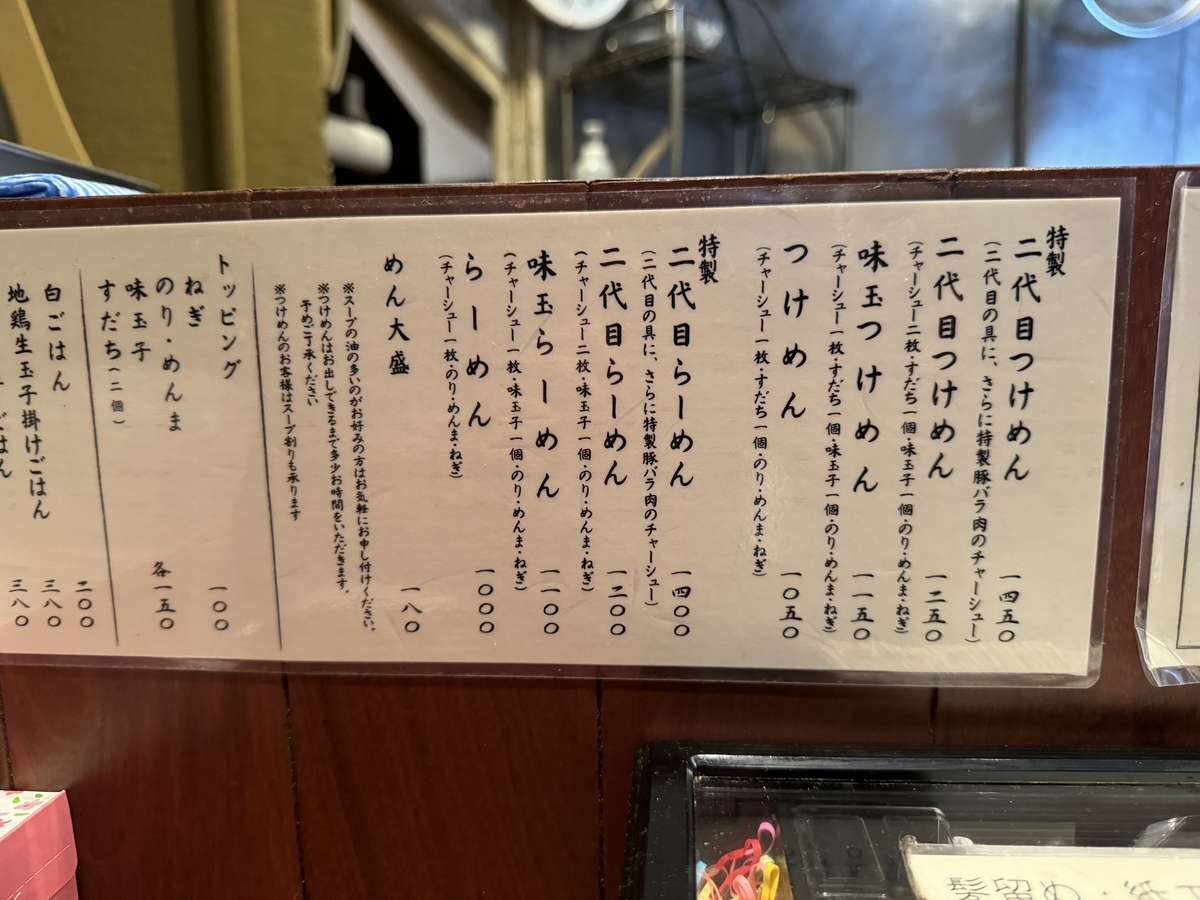 特製
二代目つけめん 一四五〇
(二代目の具に、さらに特製豚バラ肉のチャーシュー)
二代目つけめん 一二五〇
(チャーシュー二枚・すだち一個・味玉子一個・のり・めんま・ねぎ)
味玉つけめん 一一五〇
(チャーシュー一枚・すだち一個・味玉子一個・のり・めんま・ねぎ)
つけめん 一〇五〇
(チャーシュー一枚・すだち一個・のり・めんま・ねぎ)
特製
二代目らーめん 一四〇〇
(二代目の具に、さらに特製豚バラ肉のチャーシュー)
二代目らーめん 一二〇〇
(チャーシュー二枚・味玉子一個・のり・めんま・ねぎ)
味玉らーめん 一一〇〇
(チャーシュー一枚・味玉子一個・のり・めんま・ねぎ)
らーめん 一〇〇〇
(チャーシュー一枚・のり・めんま・ねぎ)
めん大盛 一八〇
※スープの油の多いのがお好みの方はお気軽にお申し付けください。
※つけめんはお出しできるまで多少お時間をいただきます。
予めご了承ください
※つけめんのお客様はスープ割りも承ります
トッピング
ねぎ 一〇〇
のり・めんま
味玉子 各一五〇
すだち(二個)
白ごはん 二〇〇
地鶏生玉子掛けごはん 三八〇
ごはん 三八〇
髪留め・紙